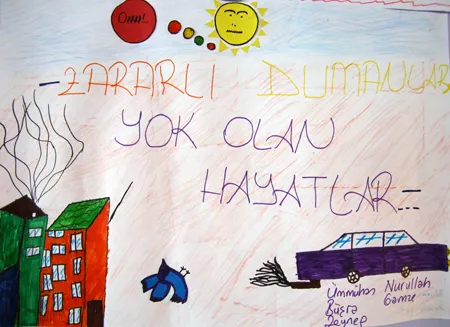 Ohh!
-ZARARLI DUMANLAR
YOK OLAN
HAYATLAR...-
Ümmühan Nurullah
Büşra Gamze
Zeynep